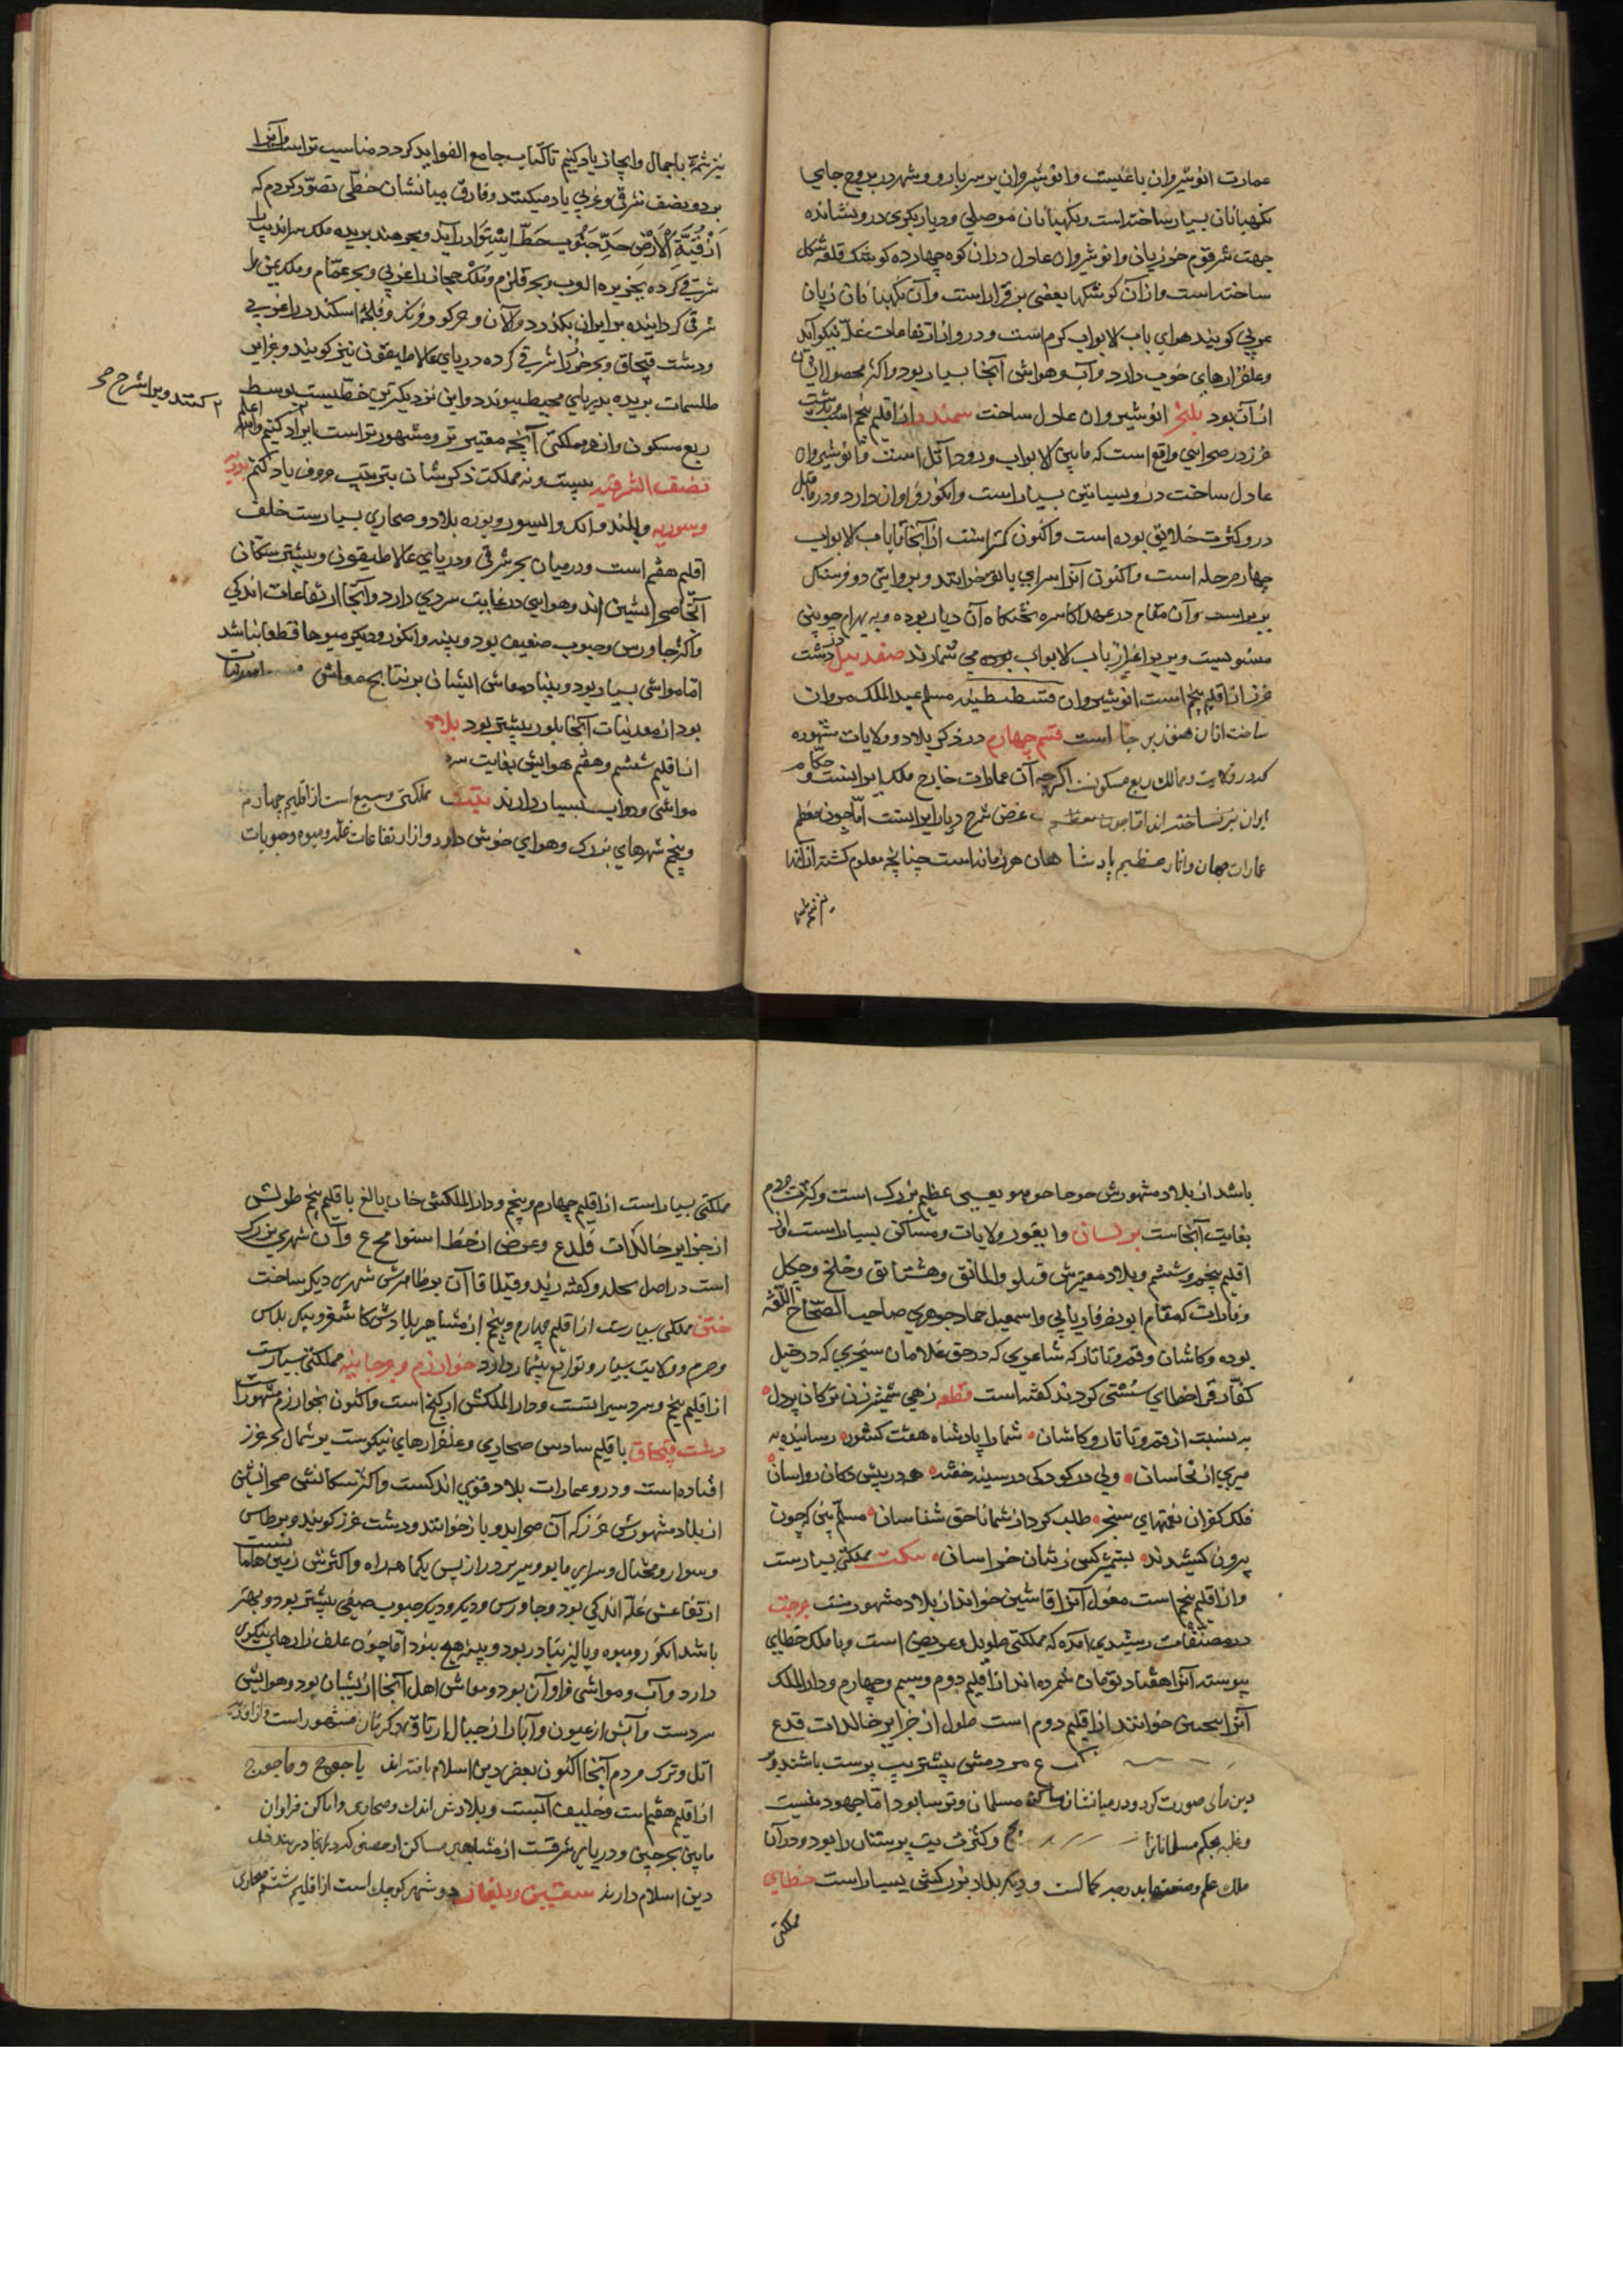 عمارت انوشیروان باغیست وانوشیروان بر سر بارو و شهر در بروج جایی
نکهبانان بسیار ساخته است ونکهبانان موصلی ودیاربکری درو نشانده
جهت شر قوم خوزیان وانوشیروان عادل دران کوه چهارده کوشک قلعه شکل
ساخته است وازان کوشکها بعضی برقرار است وآن نکهبانان زبان
عربی کویند هوای باب الابواب کرم است ودرو از ارتفاعات غله نیکو آید
وعلفزارهای خوب دارد وآب وهواشی آنجا بسیار بود واکثر محصول ایشان
از آن بود بلنجر انوشیروان عادل ساخت سمندر از اقلیم پنجم است بدشت
خزر در صحرایی واقع است که مابین الابواب ورود آتل است وانوشیروان
عادل ساخت درو بساتین بسیار است وانکور فراوان دارد ودر ماقبل
درو کثرت خلایق بوده است واکنون کمتر است از آنجا تا باب الابواب
چهار مرحله است واکنون آنرا سرای باتو خوانند وبروایتی دو فرسنک
برتر است وآن مقام در عهد اکاسره تختکاه آن دیار بوده وبه بهرام چوبین
منسوبست وبر بواقی از باب الابواب بوده می شمارند صغدبیل در دشت
خزر از اقلیم پنجم است انوشیروان قسطنطنیه مسلم عبدالملک مروان
ساخت ازان هنوز برجا است قسم چهارم در ذکر بلاد وولایات مشهوره
که در ولایت وممالک ربع مسکونست اکرچه آن عمارات خارج ملک ایرانست وحکام
ایران نیز نساخته اند اما چون معظم غرض شرح دیار ایرانست اما چون معظم
عمارات جهان واثار عظیم پادشاهان هر زمانه است چنانچه معلوم کشته از آنها
نیز شمه باجمال وایجاز یاد کنیم تا کتاب جامع الفواید کردد مناسب تر است وآنرا
بر دو نصف شرقی وغربی یاد میکنند وفارق میانشان خطی تصور کردم که
از قبة الارض حد جنوب خط استوا درآید وبحر هند بریده ملک سراندیب را
شرقی کرده بجزیره العرب وبحر قلزم وملک حجاز را غربی وبحر عمان وملک یمن را
شرقی کردانیده بر ایران بکذرد وآلان وجرکز وفرنک وقلعه اسکندر را غربی
ودشت قبچاق وبحر خزر را شرقی کرده دریای غلاطیقون نیز کویند وبر این
طلسمات بریده بدریای محیط پیوندد واین نزدیکترین خطیست بوسط
ربع مسکون واز هر مملکتی آنچه معتبرتر ومشهورتر است ایراد کنیم والله اعلم
کنند ویرا شرح صح
نصف الشرقیه بیست ونه مملکت ذکرشان بترتیب حروف یاد کنیم
وسوریه وبلند وانک والیسور وبوره بلاد وصحاری بسیارست خلف
اقلیم هفتم است ودرمیان بحر شرقی ودریای غلاطیقون وبیشتر سکان
آنجا صحرانشین اند وهوایی در غایت سردی دارد وآنجا ارتفاعات اندکی
واکثر جاورس وحبوب ضعیف بود وپنبه وانکور ودیکر میوها قطعا نباشد
اما مواشی بسیار بود وبنیاد معاش ایشان بر نتایج مواشی
بود از معدنیات آنجا بلور بیشتر بود بلاد
از اقلیم ششم وهفتم هوایش بغایت سرد
مواشی ودواب بسیار دارند تبت مملکتی وسیع است از اقلیم چهارم
وپنجم شهرهای بزرک وهوای خوش دارد واز ارتفاعات غله ومیوه وحبوبات
باشد از بلاد مشهورش
بغایت آنجاست وایغور ولایات ومساکن بسیار است از
اقلیم پنجم وششم وبلاد معتبرش
وفاراب که مقام ابونصر فاریابی واسمعیل حماد جوهری صاحب الصحاح اللغه
بوده وکاشان وقندز وتاتار که شاعری که در حق غلامان سنجری که در خیل
کفار قراخطای سستی کردند کفته است قطعه زهی شمشیرزن ترکان پردل
به نسبت از قندز وتاتار وکاشان شما را پادشاه هفت کشور رسانیده به
میری از نخاسان ولی در کودکی در سینه خفته هه در پیش دکان رواسان
فلک کفران نعمتهای سنجر طلب کرد از شما ناحق شناسان مسلم بینی که چون
بیرون کشیدند بشمشیر کسی زشان خراسان مملکتی بسیارست
واز اقلیم پنجم است مغول آنرا قاشین خوانند از بلاد مشهورست
در مصنفات رشیدی آمده که مملکتی طویل وعریض است وبا ملک خطای
پیوسته آنرا هفتاد تومان شمرده اند از اقلیم دوم وسیم وچهارم ودارالملک
آنرا خوانند از اقلیم دوم است طول از جزایر خالدات قدع
مردمش بیشتر بت پرست باشند وبر
دین مانی صورت کرد ودر میانشان مسلمان وترسا بود اما جهود نیست
وغلبه بحکم مسلمانان را وکثرت بت پرستان را بود ودر آن
ملک علم وصنعتها بدرجه کمالست ودیکر بلاد بزرکش بسیار است خطای
مملکتی
مملکتی بسیار است از اقلیم چهارم وپنجم ودارالملکش خان بالغ باقلیم پنجم طولش
از جزایر خالدات قلدع وعرض از خط استوا مح ع وآن شهری بزرک
است در اصل کفته زیند وقبلا قاآن بر ظاهرش شهری دیکر ساخت
ختن مملکتی بسیارست از اقلیم چهارم وپنجم از مشاهیر بلادش کاشغر
وولایت بسیار وتوابع بیشمار دارد خوارزم وجرجانیه مملکتی بسیارست
از اقلیم پنجم وسردسیر است ودارالملکش ارکنج است واکنون بخوارزم مشهور است
دشت قبچاق باقلیم سادس صحاری وعلفزارهای نیکوست بر شمال بحر خزر
افتاده است ودرو عمارات بلاد قوی اندکست واکثر سکانش صحرانشین
از بلاد مشهورش خزر که آن صحرا بدو بازخوانند ودشت خزر کویند وبرطاس
وسوار وسرای
ارتفاعش غله اندکی بود وجاورس ودیکر حبوب صیفی بیشتر بود وبهتر
باشد انکور ومیوه وپالیز بنادر بود وپنبه هیچ نبود اما چون علفزارهای نیکوی
دارد وآب ومواشی فراوان بود ومعاش اهل آنجا از ایشان بود وهوایش
سردست وآبش از عیون وآبار از جبال
اتل وترک مردم آنجا اکنون بعضی دین اسلام یافته اند یاجوج وماجوج
از اقلیم هفتم است وبلادش اندک وصحاری واماکن فراوان
مابین بحر چین ودریای شرقست از مشاهیر مساکن او حصنی
دین اسلام دارند سقسین وبلغار دو شهر کوچک است از اقلیم ششم صحاری